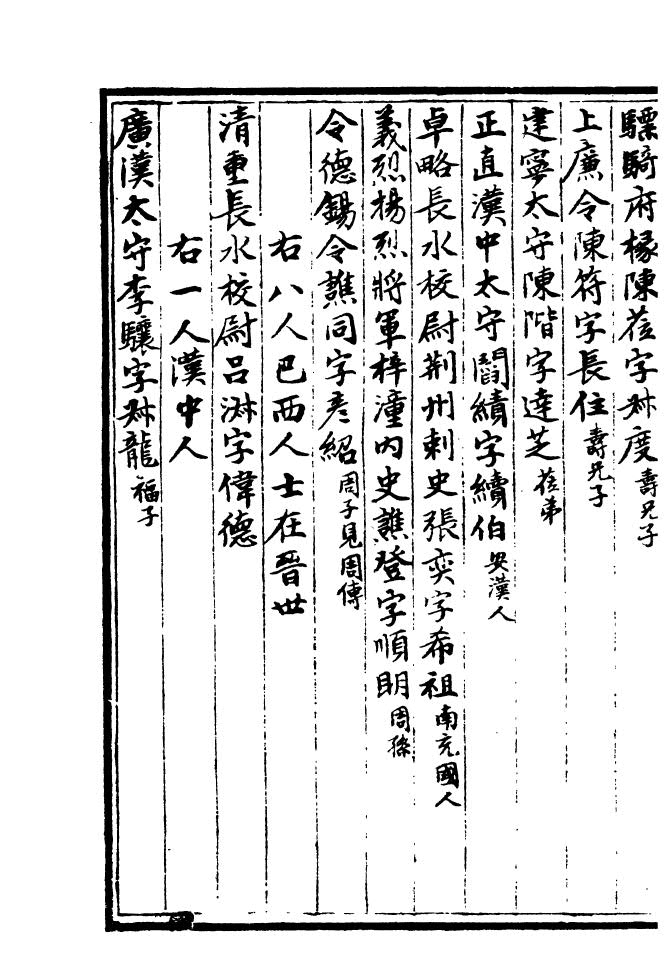 驃騎府椽陳莅字叔度壽兄子
上廉令陳符字長住壽兄子
建寧太守陳階字達芝莅弟
正直漢中太守閻纘字續伯安漢人
卓略長水校尉荆州刺史張奕字希祖南充國人
義烈揚烈將軍梓潼內史譙登字順明周孫
令德錫令譙同字彥紹周子見周傳
右八人巴西人士在晉世
清重長水校尉呂淋字偉德
右一人漢中人
廣漢太守李驤字叔龍福子